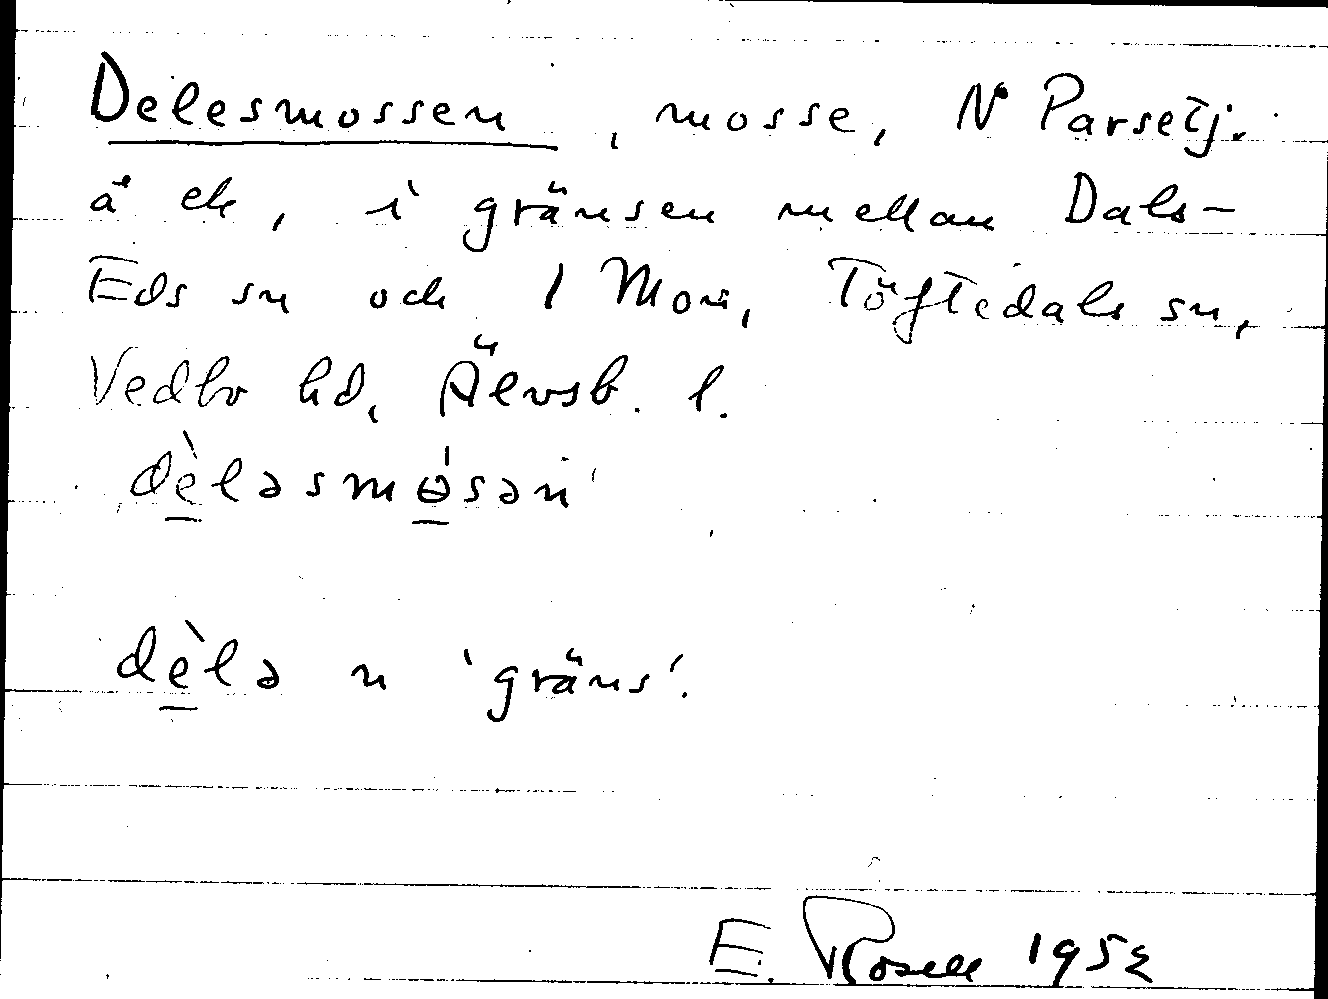 Delesmossen, mosse, N Parsetj.
å ek, i gränsen mellan Dals-
Eds sn och 1 Mon, Töftedals sn,
Vedbo hd, Älvsb. l.
dèləsmɵ́sən
dèlə n 'gräns'.
E. Rosell 1952